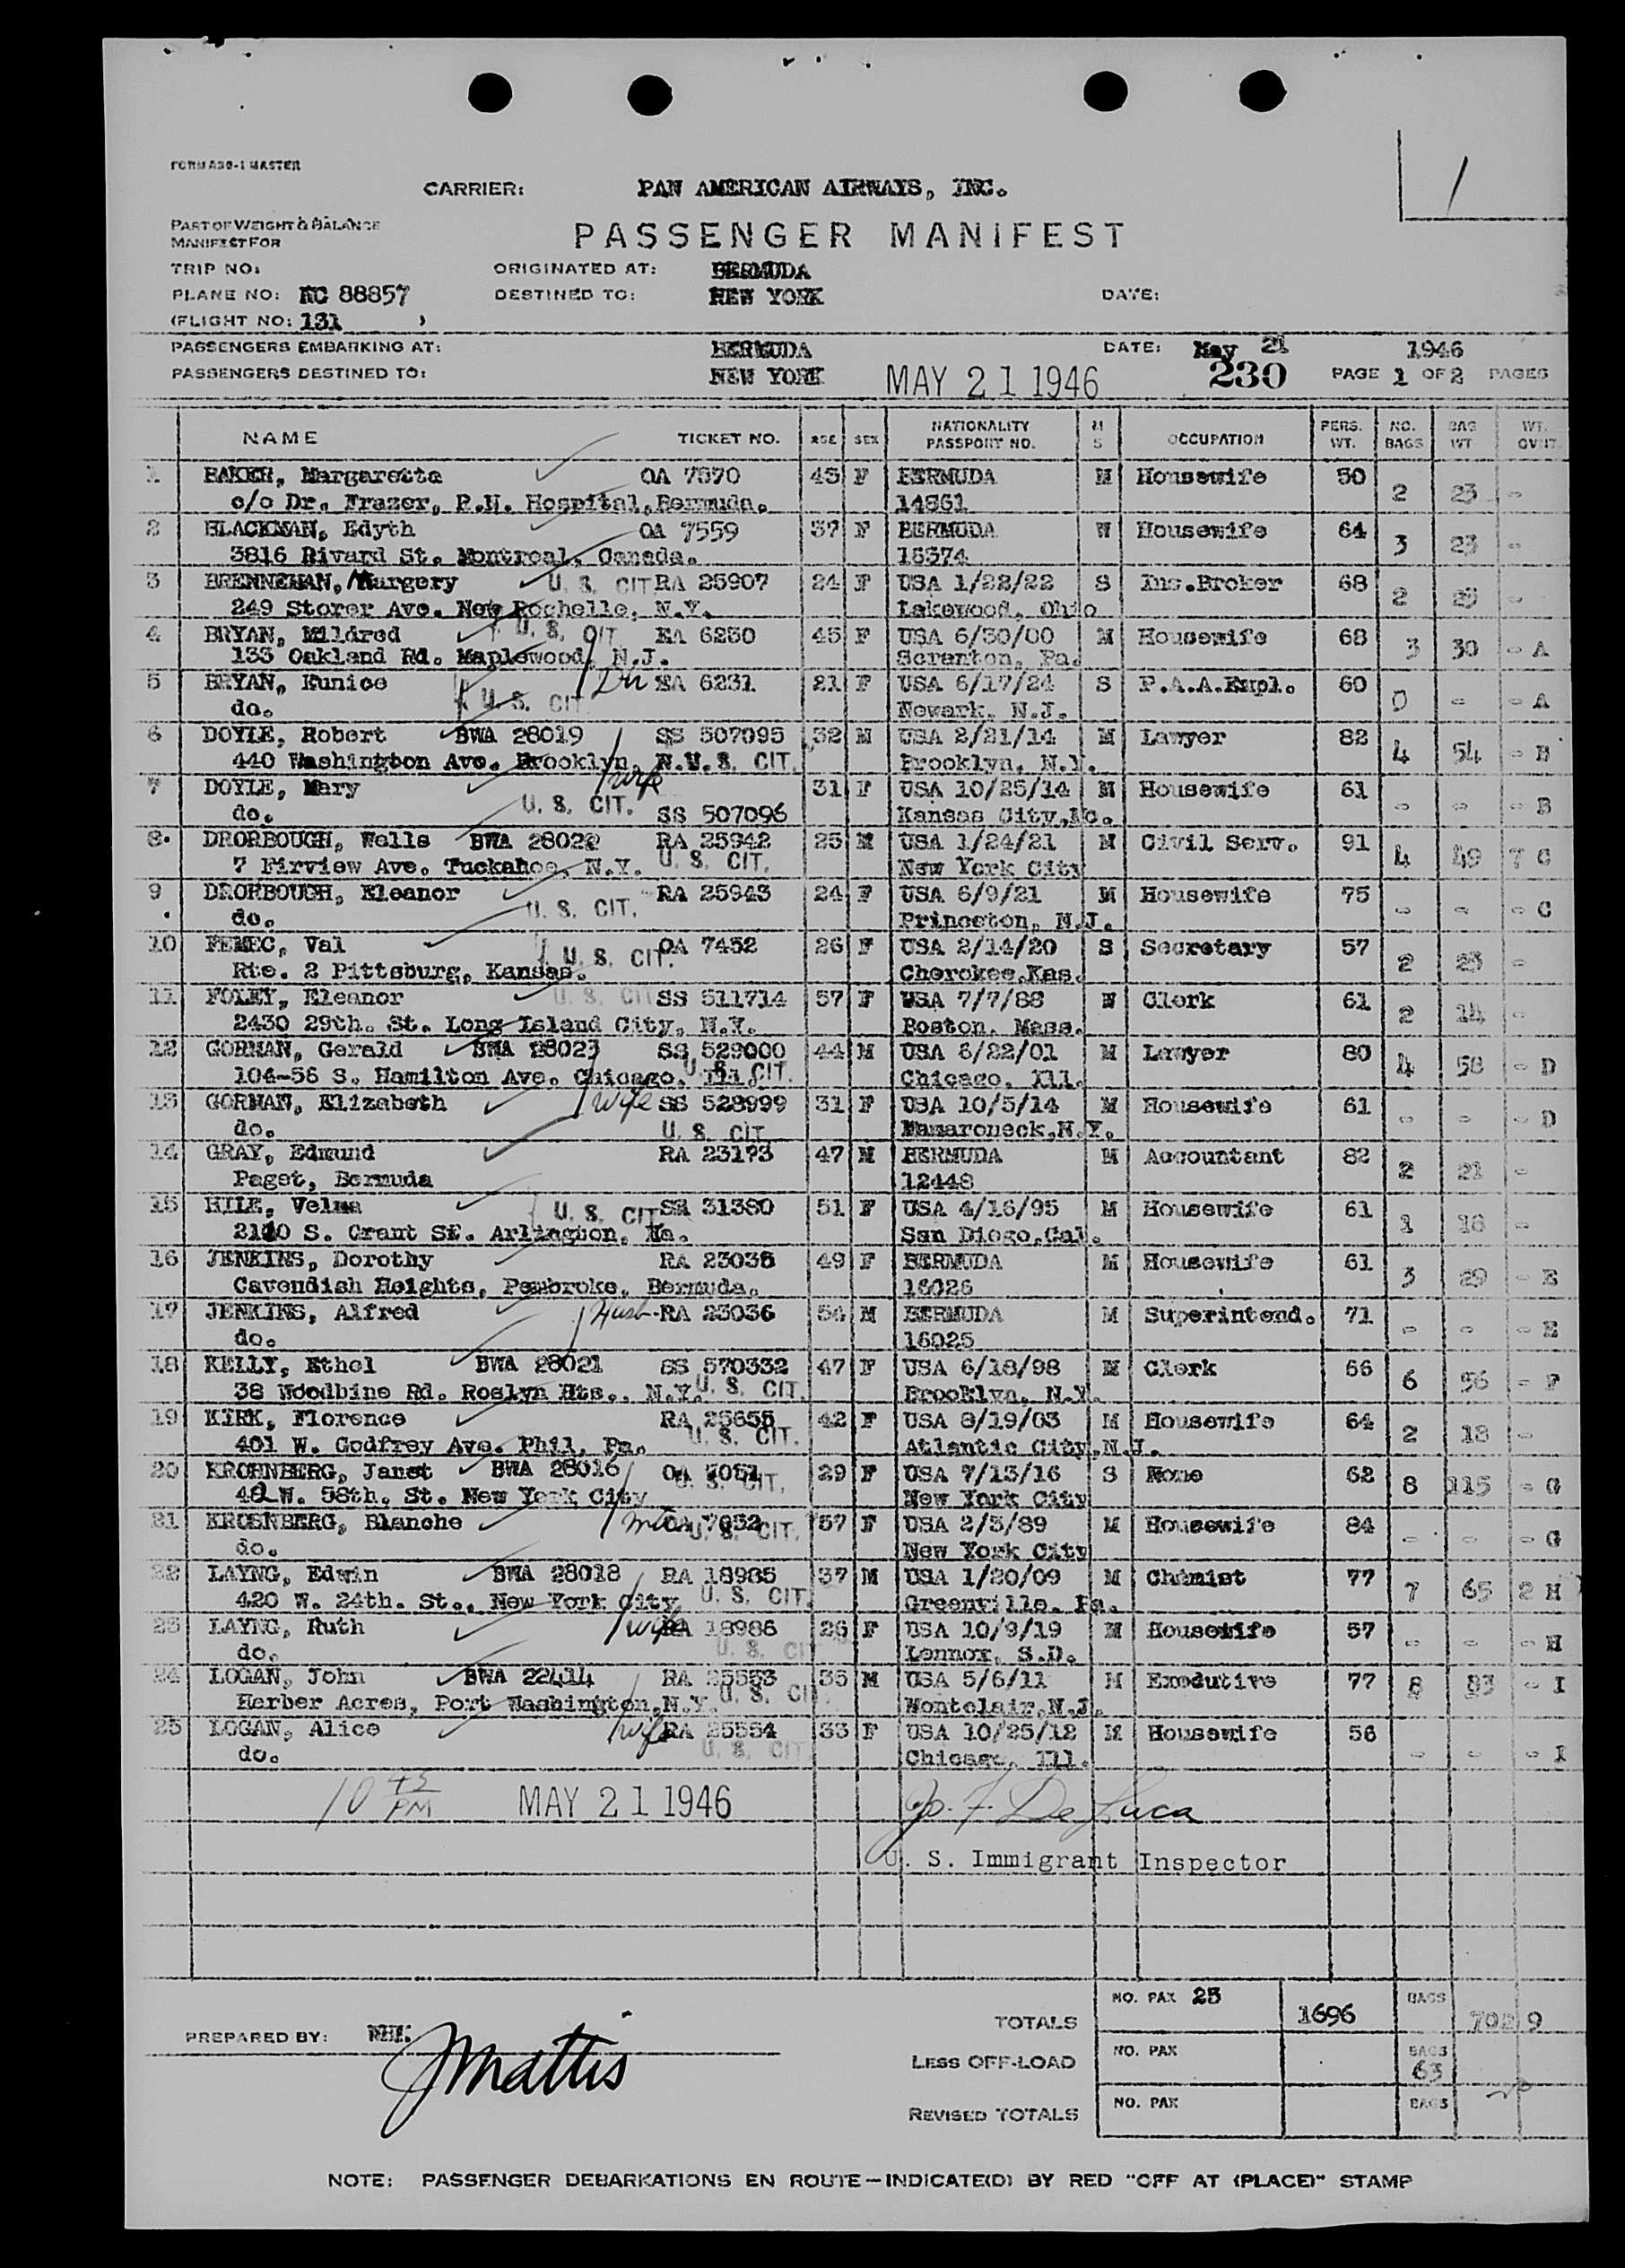 FORM A30-1 MASTER
CARRIER: PAN AMERICAN AIRWAYS, INC.
1
PART OF WEIGHT & BALANCE
MANIFEST FOR
PASSENGER MANIFEST
TRIP NO: ORIGINATED AT: BERMUDA
PLANE NO: NC 88857 DESTINED TO: NEW YORK DATE:
(FLIGHT NO: 131 )
PASSENGERS EMBARKING AT: BERMUDA DATE: May 21 1946
PASSENGERS DESTINED TO: NEW YORK MAY 21 1946 230 PAGE 1 OF 2 PAGES
NAME TICKET NO. AGE SEX NATIONALITY PASSPORT NO. M S OCCUPATION PERS. WT. NO. BAGS BAG WT WT.
1 BAKER, Margaretta OA 7570 45 F BERMUDA M Housewife 50 2 23 -
c/o Dr. Frazer, P.H. Hospital, Bermuda. 14861
2 BLACKMAN, Edyth OA 7559 37 F BERMUDA W Housewife 64 3 23 -
3816 Rivard St. Montreal, Canada. 15374
3 BRENNEMAN, Margery U. S. CIT RA 25907 24 F USA 1/22/22 S Ins.Broker 68 2 25 -
249 Storer Ave. New Rochelle, N.Y. Lakewood, Ohio
4 BRYAN, Mildred U. S. CIT. EA 6230 45 F USA 6/30/00 M Housewife 68 3 30 - A
133 Oakland Rd. Maplewood, N.J. Scranton, Pa.
5 BRYAN, Eunice U. S. CIT. EA 6231 21 F USA 6/17/24 S P.A.A.Empl. 60 0 - - A
do. Newark, N.J.
6 DOYLE, Robert BWA 28019 SS 507095 32 M USA 2/21/14 M Lawyer 82 4 54 - B
440 Washington Ave. Brooklyn, N. U. S. CIT. Brooklyn, N.Y.
7 DOYLE, Mary wife 31 F USA 10/25/14 M Housewife 61 - - - B
do. U. S. CIT. SS 507096 Kansas City,Mo.
8. DRORBOUGH, Wells BWA 28022 RA 25942 25 M USA 1/24/21 M Civil Serv. 91 4 49 7 C
7 Firview Ave. Tuckahoe, N.Y. U. S. CIT. New York City
9 DRORBOUGH, Eleanor RA 25943 24 F USA 6/9/21 M Housewife 75 - - - C
do. U. S. CIT. Princeton, N.J.
10 FEMEC, Val U. S. CIT. OA 7452 26 F USA 2/14/20 S Secretary 57 2 23 -
Rte. 2 Pittsburg, Kansas. Cherokee,Kas.
11 FOLEY, Eleanor U. S. CIT SS 511714 57 F USA 7/7/88 W Clerk 61 2 14 -
2430 29th. St. Long Island City, N.Y. Boston, Mass.
12 GORMAN, Gerald BWA 28023 SS 529000 44 M USA 6/22/01 M Lawyer 80 4 58 - D
104-56 S. Hamilton Ave. Chicago, Ill. U. S. CIT. Chicago, Ill.
13 GORMAN, Elizabeth wife SS 528999 31 F USA 10/5/14 M Housewife 61 - - - D
do. U. S. CIT. Mamaroneck,N.Y.
14 GRAY, Edmund RA 23173 47 M BERMUDA M Accountant 82 2 21 -
Paget, Bermuda 12448
15 HILE, Velma U. S. CIT SR 31380 51 F USA 4/16/95 M Housewife 61 1 18 -
2110 S. Grant St. Arlington, Va. San Diego,Cal.
16 JENKINS, Dorothy RA 23035 49 F BERMUDA M Housewife 61 3 29 - E
Cavendish Heights, Pembroke, Bermuda. 16026
17 JENKINS, Alfred Husb- RA 23036 54 M BERMUDA M Superintend. 71 - - - E
do. 16025
18 KELLY, Ethel BWA 28021 SS 570332 47 F USA 6/18/98 M Clerk 66 6 56 - F
38 Woodbine Rd. Roslyn Hts., N.Y. U. S. CIT. Brooklyn, N.Y.
19 KIRK, Florence RA 25655 42 F USA 8/19/03 M Housewife 64 2 18 -
401 W. Godfrey Ave. Phil, Pa. U. S. CIT. Atlantic City,N.J.
20 KROENBERG, Janet BWA 28016 OA 7051 29 F USA 7/13/16 S None 62 8 115 - G
40 W. 58th. St. New York City U. S. CIT. New York City
21 KROENBERG, Blanche OA 7052 U. S. CIT. 57 F USA 2/3/89 M Housewife 84 - - - G
do. New York City
22 LAYNG, Edwin BWA 28018 RA 18985 37 M USA 1/20/09 M Chemist 77 7 65 2 H
420 W. 24th. St., New York City U. S. CIT. Greenville, Pa.
23 LAYNG, Ruth wife RA 18986 26 F USA 10/9/19 M Housewife 57 - - - H
do. U. S. CIT Lennox, S.D.
24 LOGAN, John BWA 22414 RA 25553 35 M USA 5/6/11 M Executive 77 8 83 - I
Harber Acres, Port Washington,N.Y. U. S. CIT. Montclair,N.J.
25 LOGAN, Alice wife RA 25554 33 F USA 10/25/12 M Housewife 56 - - - I
do. U. S. CIT. Chicago, Ill.
10 45 PM MAY 21 1946 Jo. F. De Luca
U. S. Immigrant Inspector
TOTALS NO. PAX 25 1696 BAGS 702 9
PREPARED BY: JMattis
LESS OFF-LOAD NO. PAX BAGS 63
REVISED TOTALS NO. PAX BAGS
NOTE: PASSENGER DEBARKATIONS EN ROUTE—INDICATE(D) BY RED "OFF AT (PLACE)" STAMP